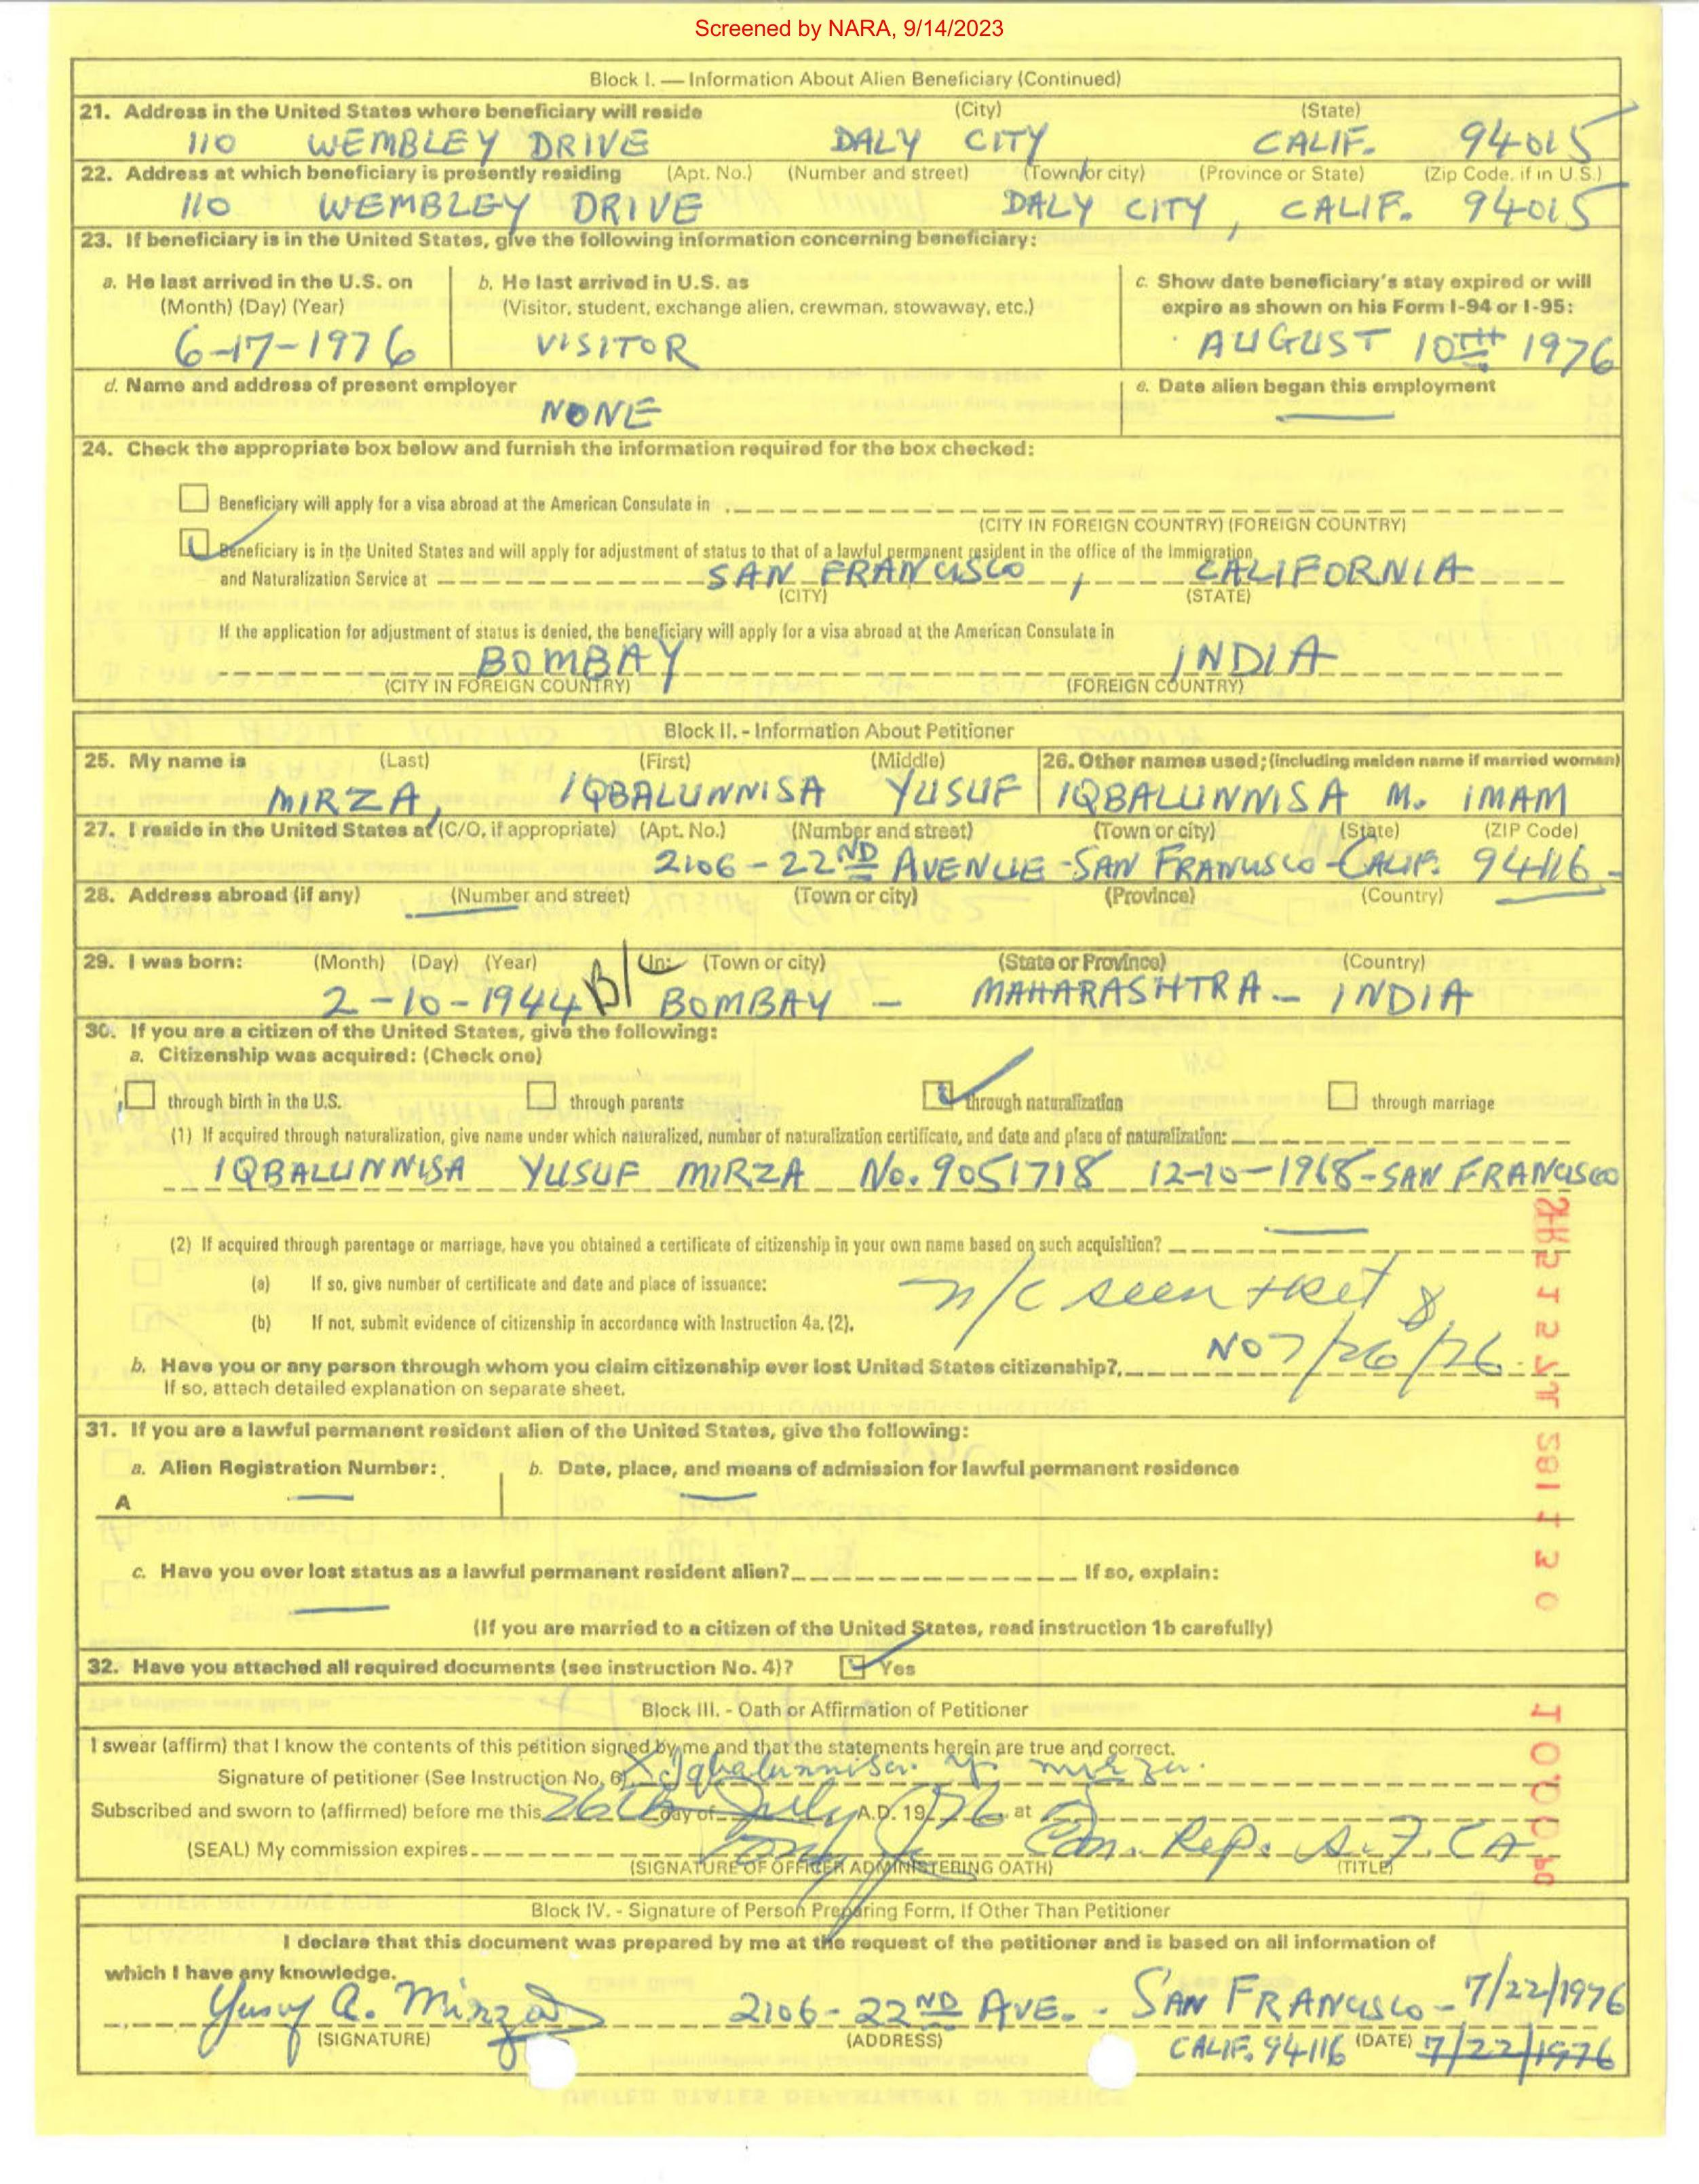 Screened by NARA, 9/14/2023
Block I. — Information About Alien Beneficiary (Continued)
21. Address in the United States where beneficiary will reside (City) (State)
110 WEMBLEY DRIVE DALY CITY CALIF. 94015
22. Address at which beneficiary is presently residing (Apt. No.) (Number and street) (Town or city) (Province or State) (Zip Code, if in U.S.)
110 WEMBLEY DRIVE DALY CITY, CALIF. 94015
23. If beneficiary is in the United States, give the following information concerning beneficiary:
a. He last arrived in the U.S. on b. He last arrived in U.S. as c. Show date beneficiary's stay expired or will
(Month) (Day) (Year) (Visitor, student, exchange alien, crewman, stowaway, etc.) expire as shown on his Form I-94 or I-95:
6-17-1976 VISITOR AUGUST 10TH 1976
d. Name and address of present employer e. Date alien began this employment
NONE —
24. Check the appropriate box below and furnish the information required for the box checked:
Beneficiary will apply for a visa abroad at the American Consulate in
(CITY IN FOREIGN COUNTRY) (FOREIGN COUNTRY)
Beneficiary is in the United States and will apply for adjustment of status to that of a lawful permanent resident in the office of the Immigration
and Naturalization Service at SAN FRANCISCO, CALIFORNIA
(CITY) (STATE)
If the application for adjustment of status is denied, the beneficiary will apply for a visa abroad at the American Consulate in
BOMBAY INDIA
(CITY IN FOREIGN COUNTRY) (FOREIGN COUNTRY)
Block II. - Information About Petitioner
25. My name is (Last) (First) (Middle) 26. Other names used; (including maiden name if married woman)
MIRZA, IQBALUNNISA YUSUF IQBALUNNISA M. IMAM
27. I reside in the United States at (C/O, if appropriate) (Apt. No.) (Number and street) (Town or city) (State) (ZIP Code)
2106-22ND AVENUE-SAN FRANCISCO-CALIF. 94116-
28. Address abroad (if any) (Number and street) (Town or city) (Province) (Country)
29. I was born: (Month) (Day) (Year) In: (Town or city) (State or Province) (Country)
2-10-1944 B/ BOMBAY — MAHARASHTRA - INDIA
30. If you are a citizen of the United States, give the following:
a. Citizenship was acquired: (Check one)
through birth in the U.S. through parents through naturalization through marriage
(1) If acquired through naturalization, give name under which naturalized, number of naturalization certificate, and date and place of naturalization:
IQBALUNNISA YUSUF MIRZA No. 9051718 12-10-1968-SAN FRANCISCO
(2) If acquired through parentage or marriage, have you obtained a certificate of citizenship in your own name based on such acquisition?
(a) If so, give number of certificate and date and place of issuance:
n/c seen + ret
(b) If not, submit evidence of citizenship in accordance with Instruction 4a. (2).
b. Have you or any person through whom you claim citizenship ever lost United States citizenship? NO 7/26/76
If so, attach detailed explanation on separate sheet.
31. If you are a lawful permanent resident alien of the United States, give the following:
a. Alien Registration Number: b. Date, place, and means of admission for lawful permanent residence
A — —
c. Have you ever lost status as a lawful permanent resident alien? If so, explain:
—
(If you are married to a citizen of the United States, read instruction 1b carefully)
32. Have you attached all required documents (see instruction No. 4)? Yes
Block III. - Oath or Affirmation of Petitioner
I swear (affirm) that I know the contents of this petition signed by me and that the statements herein are true and correct.
Signature of petitioner (See Instruction No. 6) X Iqbalunnisa. Y. mirza.
Subscribed and sworn to (affirmed) before me this 26th day of July A.D. 1976 at
(SEAL) My commission expires Rep. S.F. CA
(SIGNATURE OF OFFICER ADMINISTERING OATH) (TITLE)
Block IV. - Signature of Person Preparing Form, If Other Than Petitioner
I declare that this document was prepared by me at the request of the petitioner and is based on all information of
which I have any knowledge.
Yusuf A. Mirza 2106-22ND AVE. - SAN FRANCISCO - 7/22/1976
(SIGNATURE) (ADDRESS) CALIF. 94116 (DATE) 7/22/1976